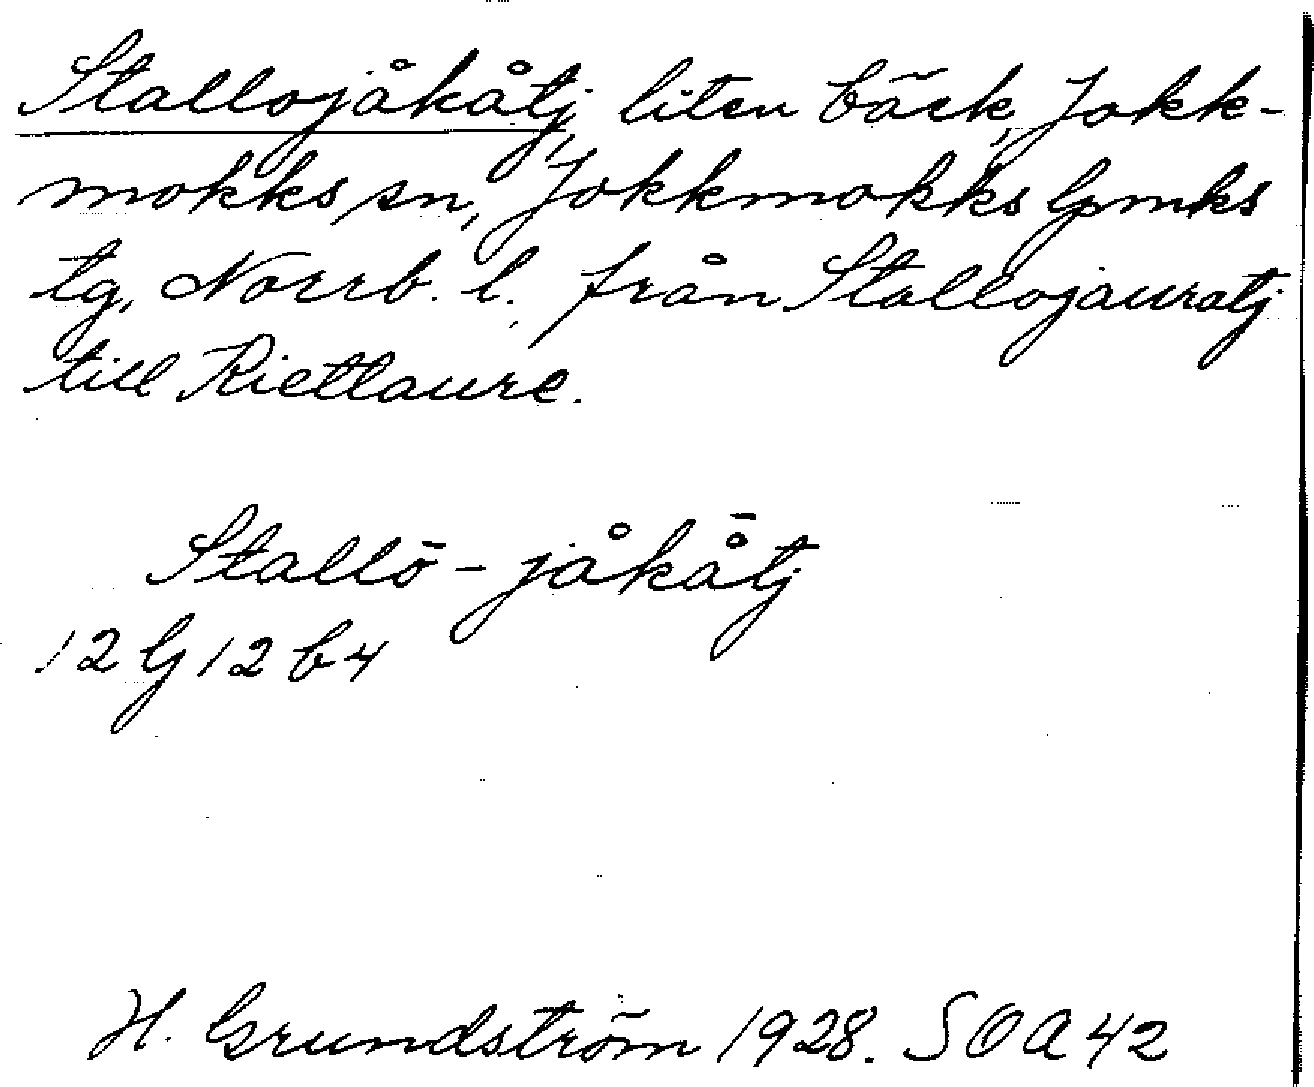 Stallojåkåtj, liten bäck, Jokk-
mokks sn, Jokkmokks lpmks
tg, Norrb. l. från Stallojauratj
till Rietlaure.
Stallō-jåkå̄tj
12G12b4
H. Grundström 1928. SOA42